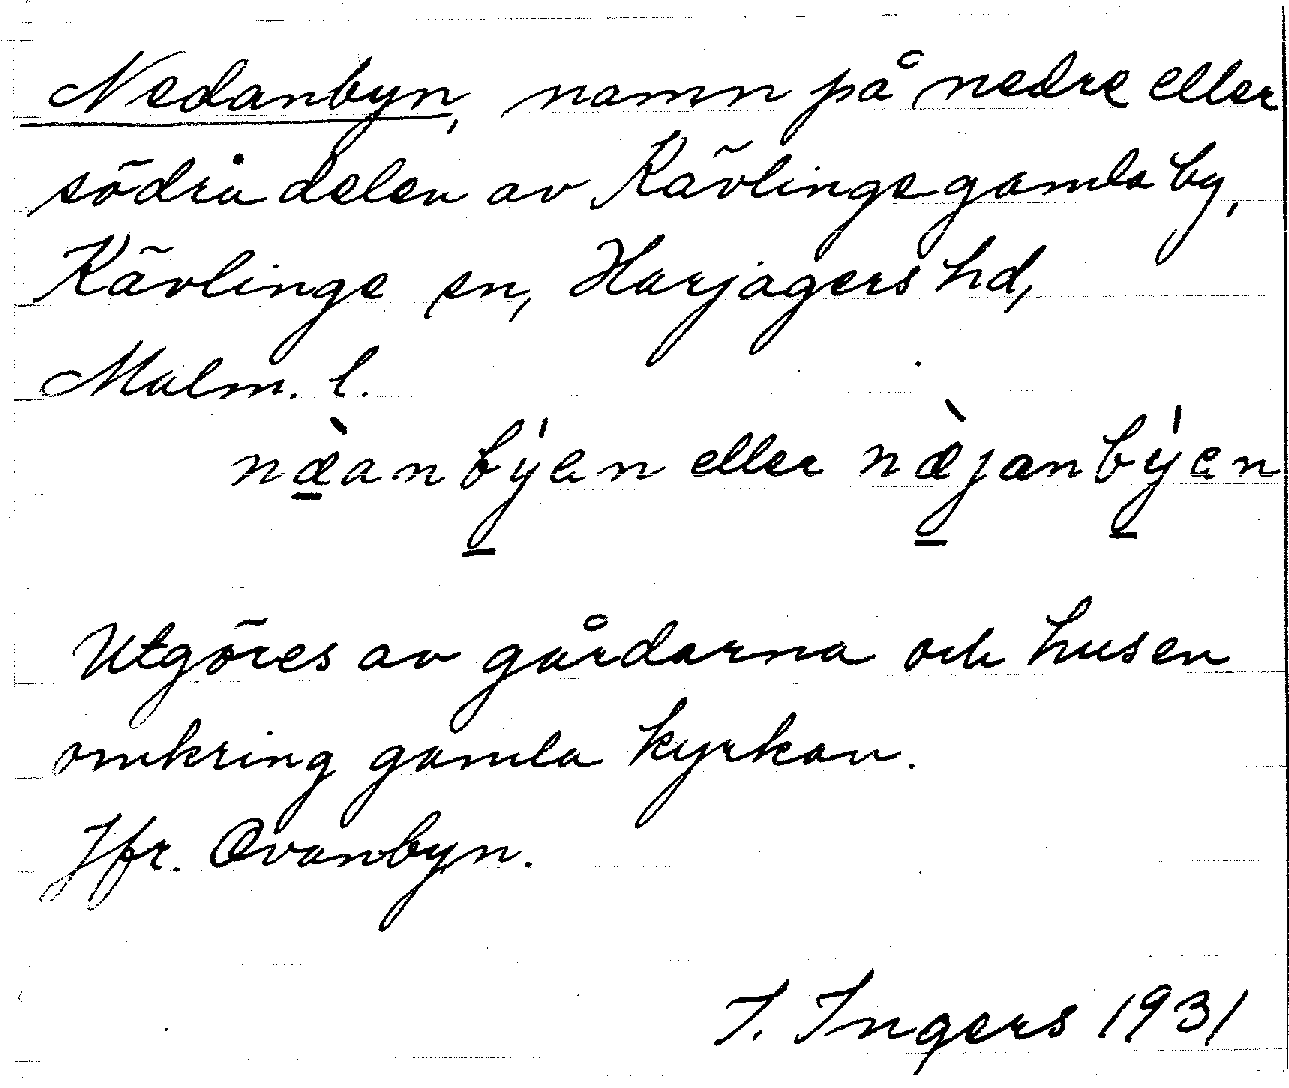 Nedanbyn, namn på nedre eller
södra delen av Kävlinge gamla by,
Kävlinge sn, Harjagers hd,
Malm. l.
næ̀anbýen eller næ̀janbýen
Utgöres av gårdarna och husen
omkring gamla kyrkan.
Jfr. Ovanbyn.
I. Ingers 1931